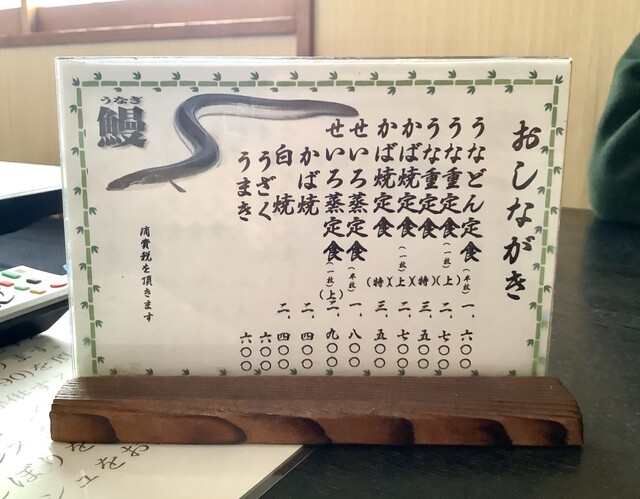 おしながき
うなどん定食(半枚) 一、六〇〇
うな重定食(一枚)(上) 二、七〇〇
うな重定食(特) 三、五〇〇
かば焼定食(一枚)(上) 二、七〇〇
かば焼定食(特) 三、五〇〇
せいろ蒸定食(半枚) 一、八〇〇
せいろ蒸定食(一枚)(上) 二、九〇〇
かば焼 二、四〇〇
白焼 二、四〇〇
うざく 六〇〇
うまき 六〇〇
消費税を頂きます
うなぎ
鰻